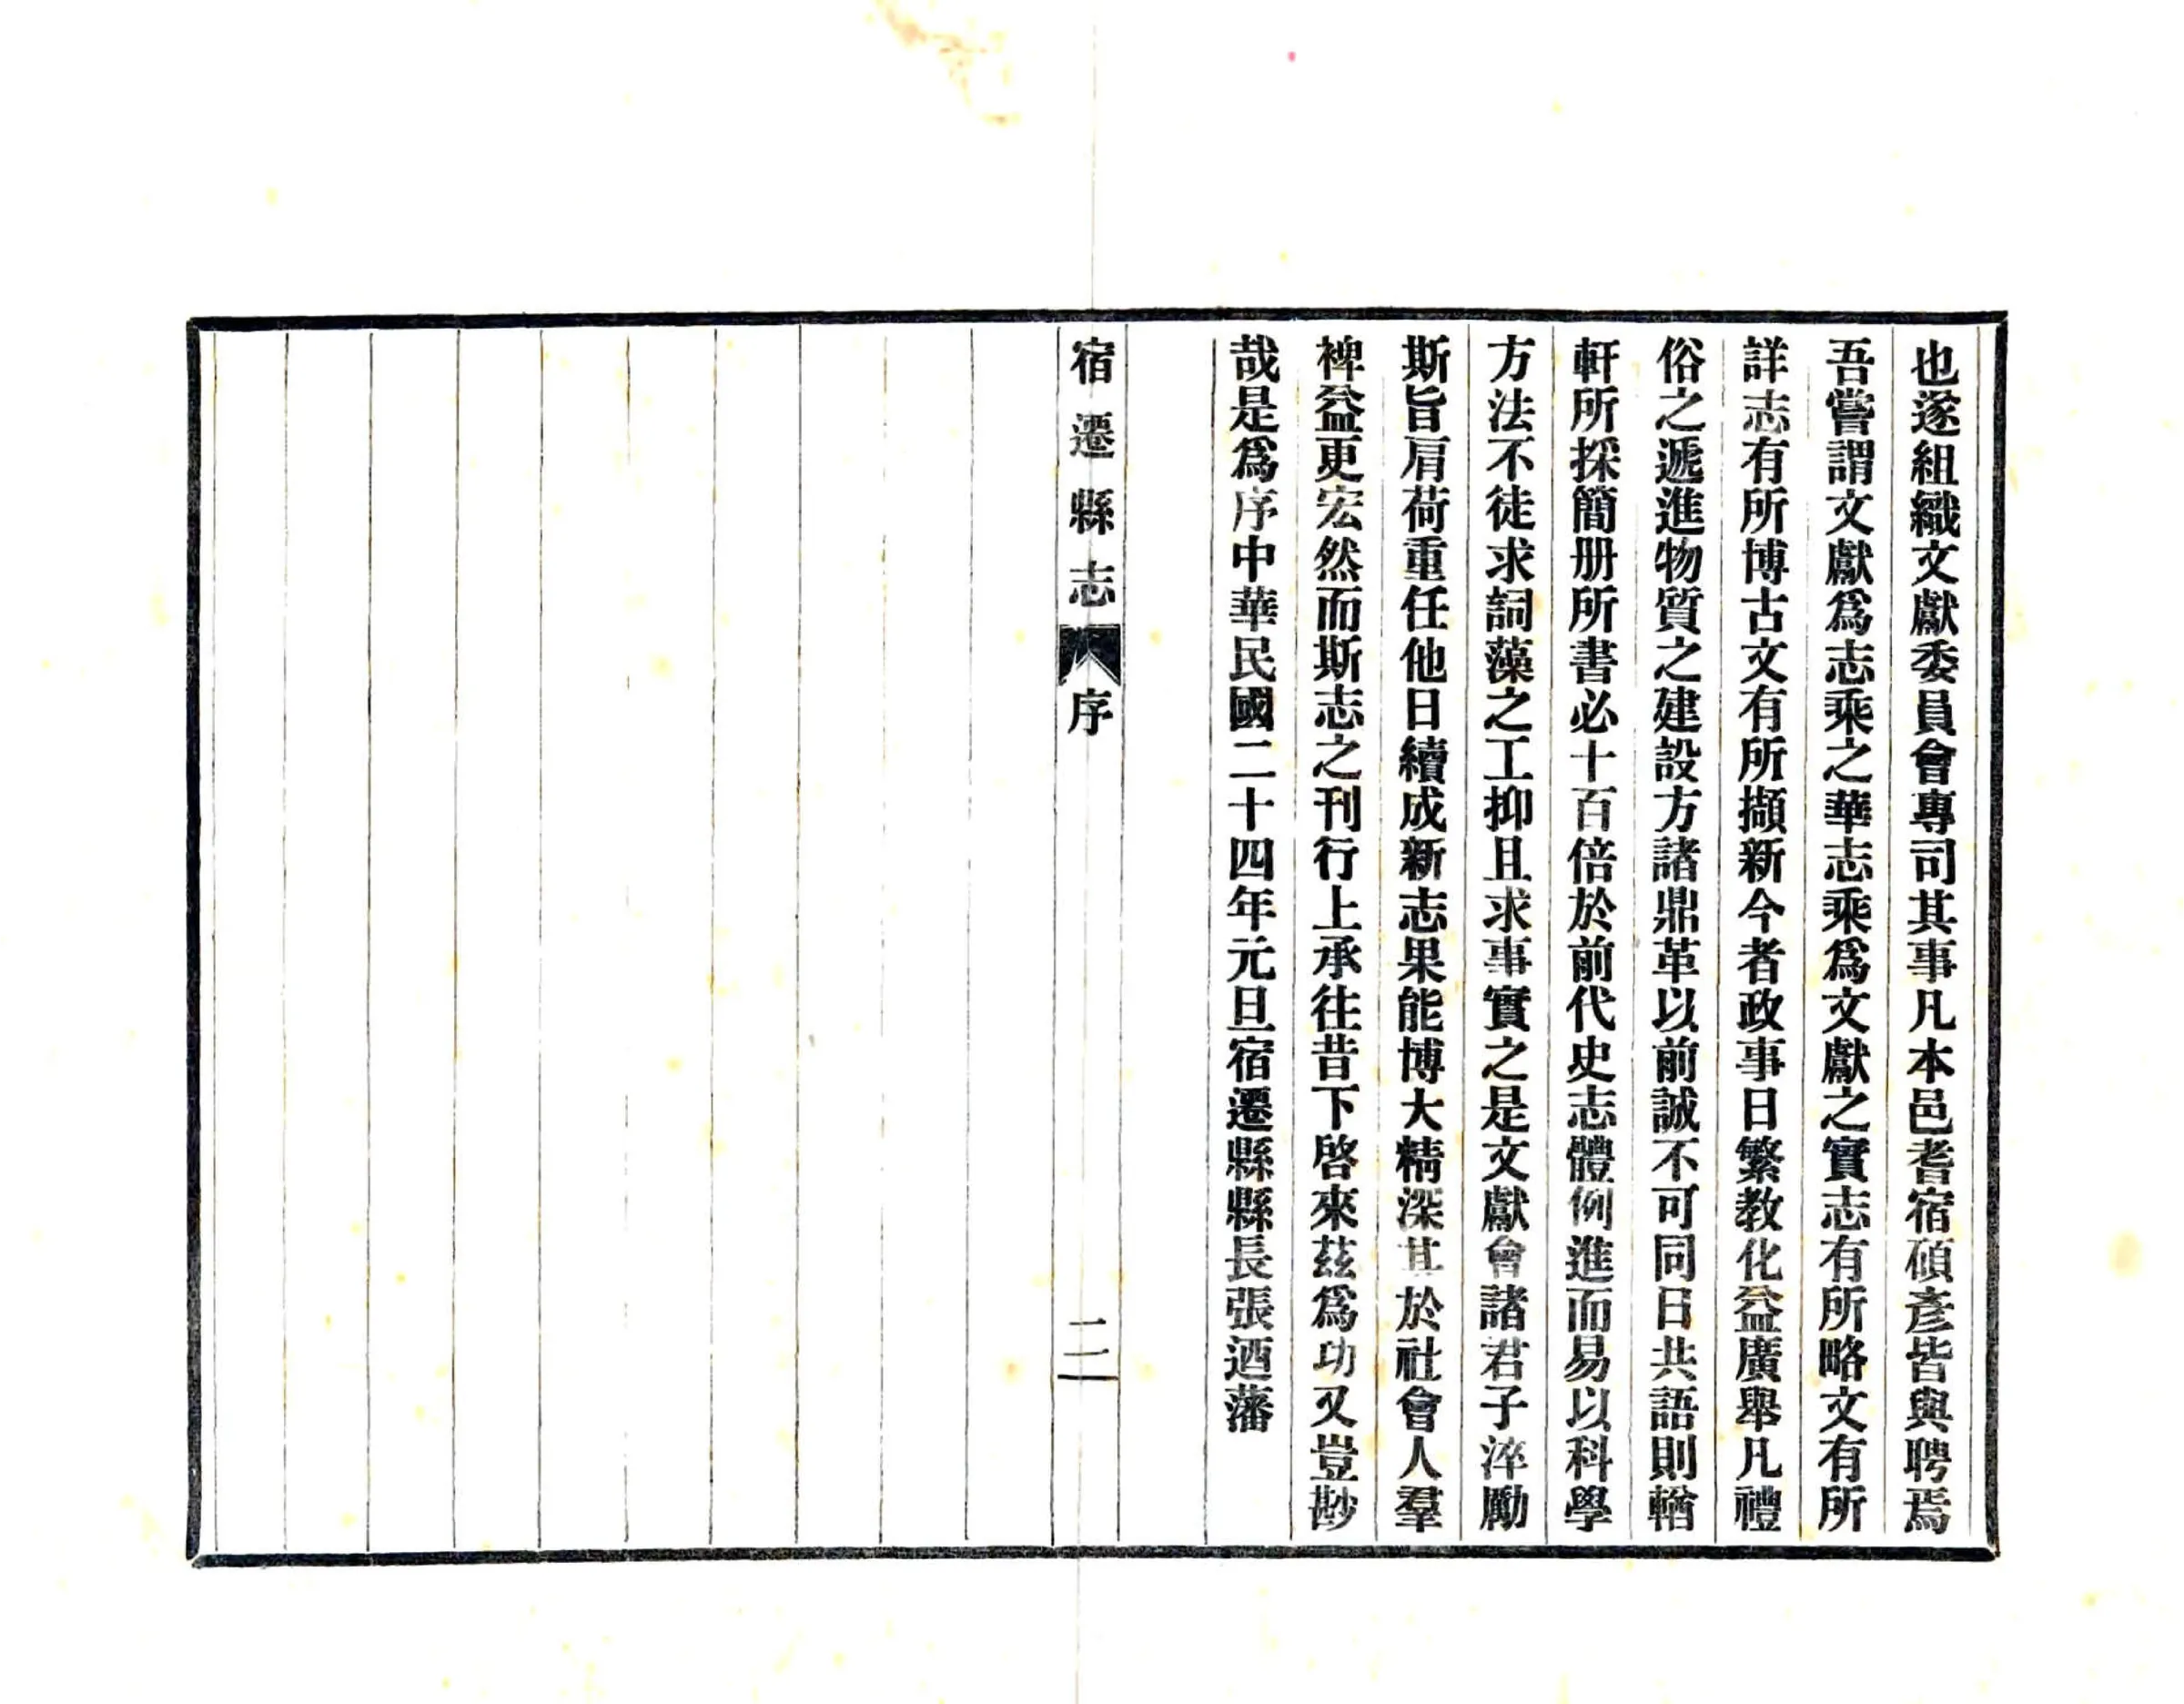 也遂組織文獻委員會專司其事凡本邑耆宿碩彥皆與聘焉
吾嘗謂文獻爲志乘之華志乘爲文獻之實志有所略文有所
詳志有所博古文有所擷新今者政事日繁教化益廣舉凡禮
俗之遞進物質之建設方諸鼎革以前誠不可同日共語則輶
軒所採簡册所書必十百倍於前代史志體例進而易以科學
方法不徒求詞藻之工抑且求事實之是文獻會諸君子淬勵
斯旨肩荷重任他日續成新志果能博大精深其於社會人羣
裨益更宏然而斯志之刊行上承往昔下啓來茲爲功又豈尠
哉是爲序中華民國二十四年元旦宿遷縣縣長張迺藩
宿遷縣志
序
二